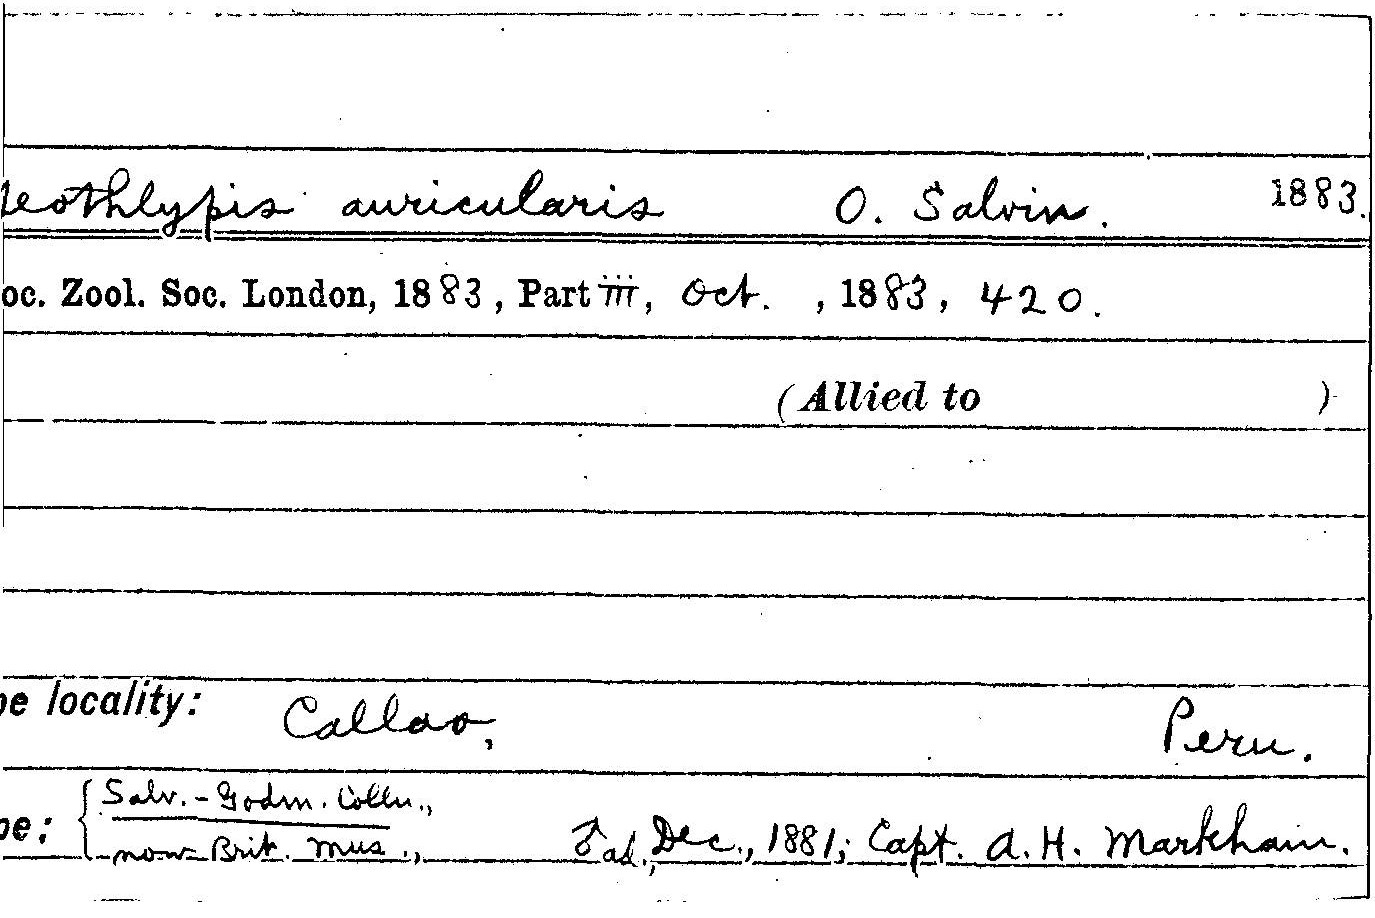 eothlypis auricularis O. Salvin. 1883.
oc. Zool. Soc. London, 1883, Part iii, Oct. , 1883, 420.
(Allied to )
pe locality: Callao, Peru.
pe: { Salv.-Godm. Colln.,
now Brit. Mus., ♂ ad., Dec., 1881; Capt. A. H. Markham.